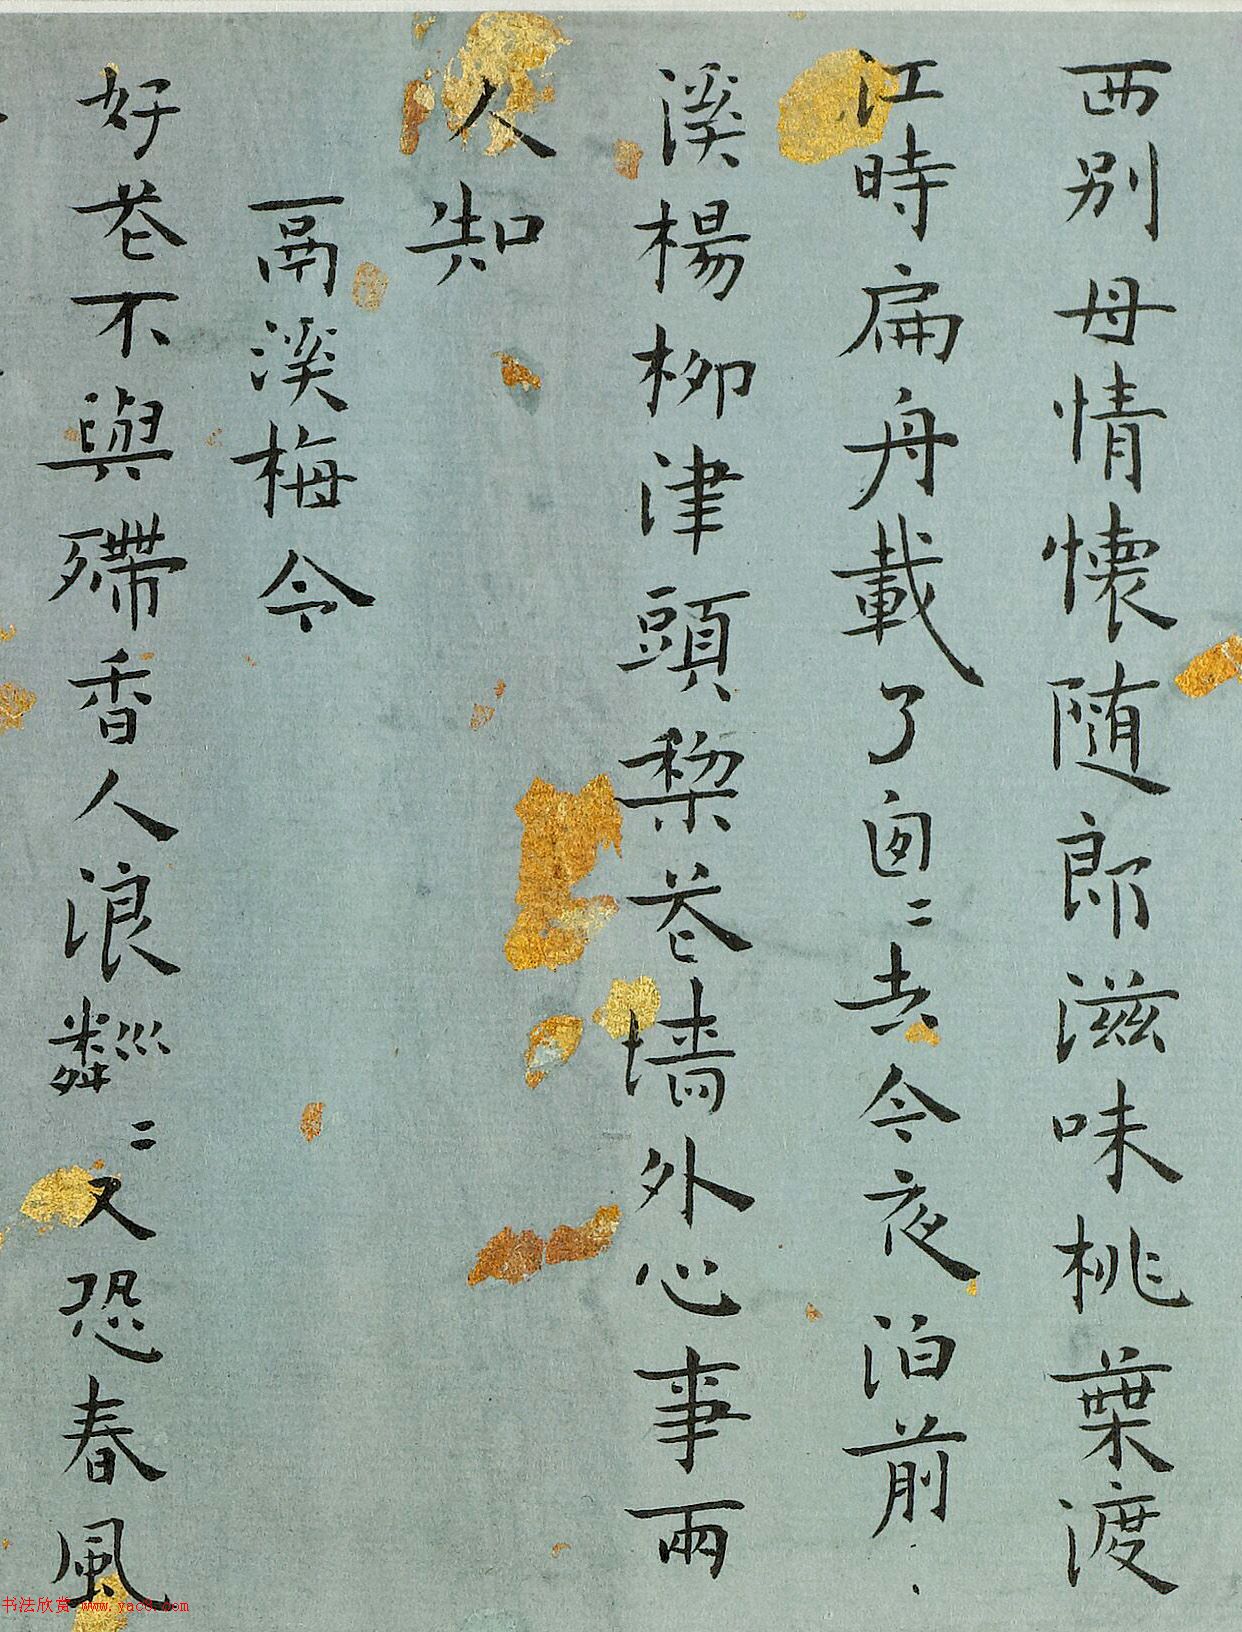 西别母情懷随郎滋味桃葉渡
江時扁舟載了匆〻去今夜泊前
溪楊柳津頭棃花墻外心事兩
人知
鬲溪梅令
好花不與殢香人浪粼〻又恐春風
书法欣赏 www.yac8.com